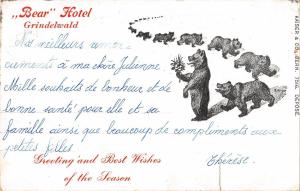 „Bear" Hotel
Grindelwald
Mes meilleurs remer-
ciements à ma chère Julienne
Mille souhaits de bonheur et de
bonne santé pour elle et sa
famille ainsi que beaucoup de compliments aux
petites filles
Thérèse.
Greeting and Best Wishes
of the Season
KAISER & CO., BERN. 1904. DEPOSÉ.